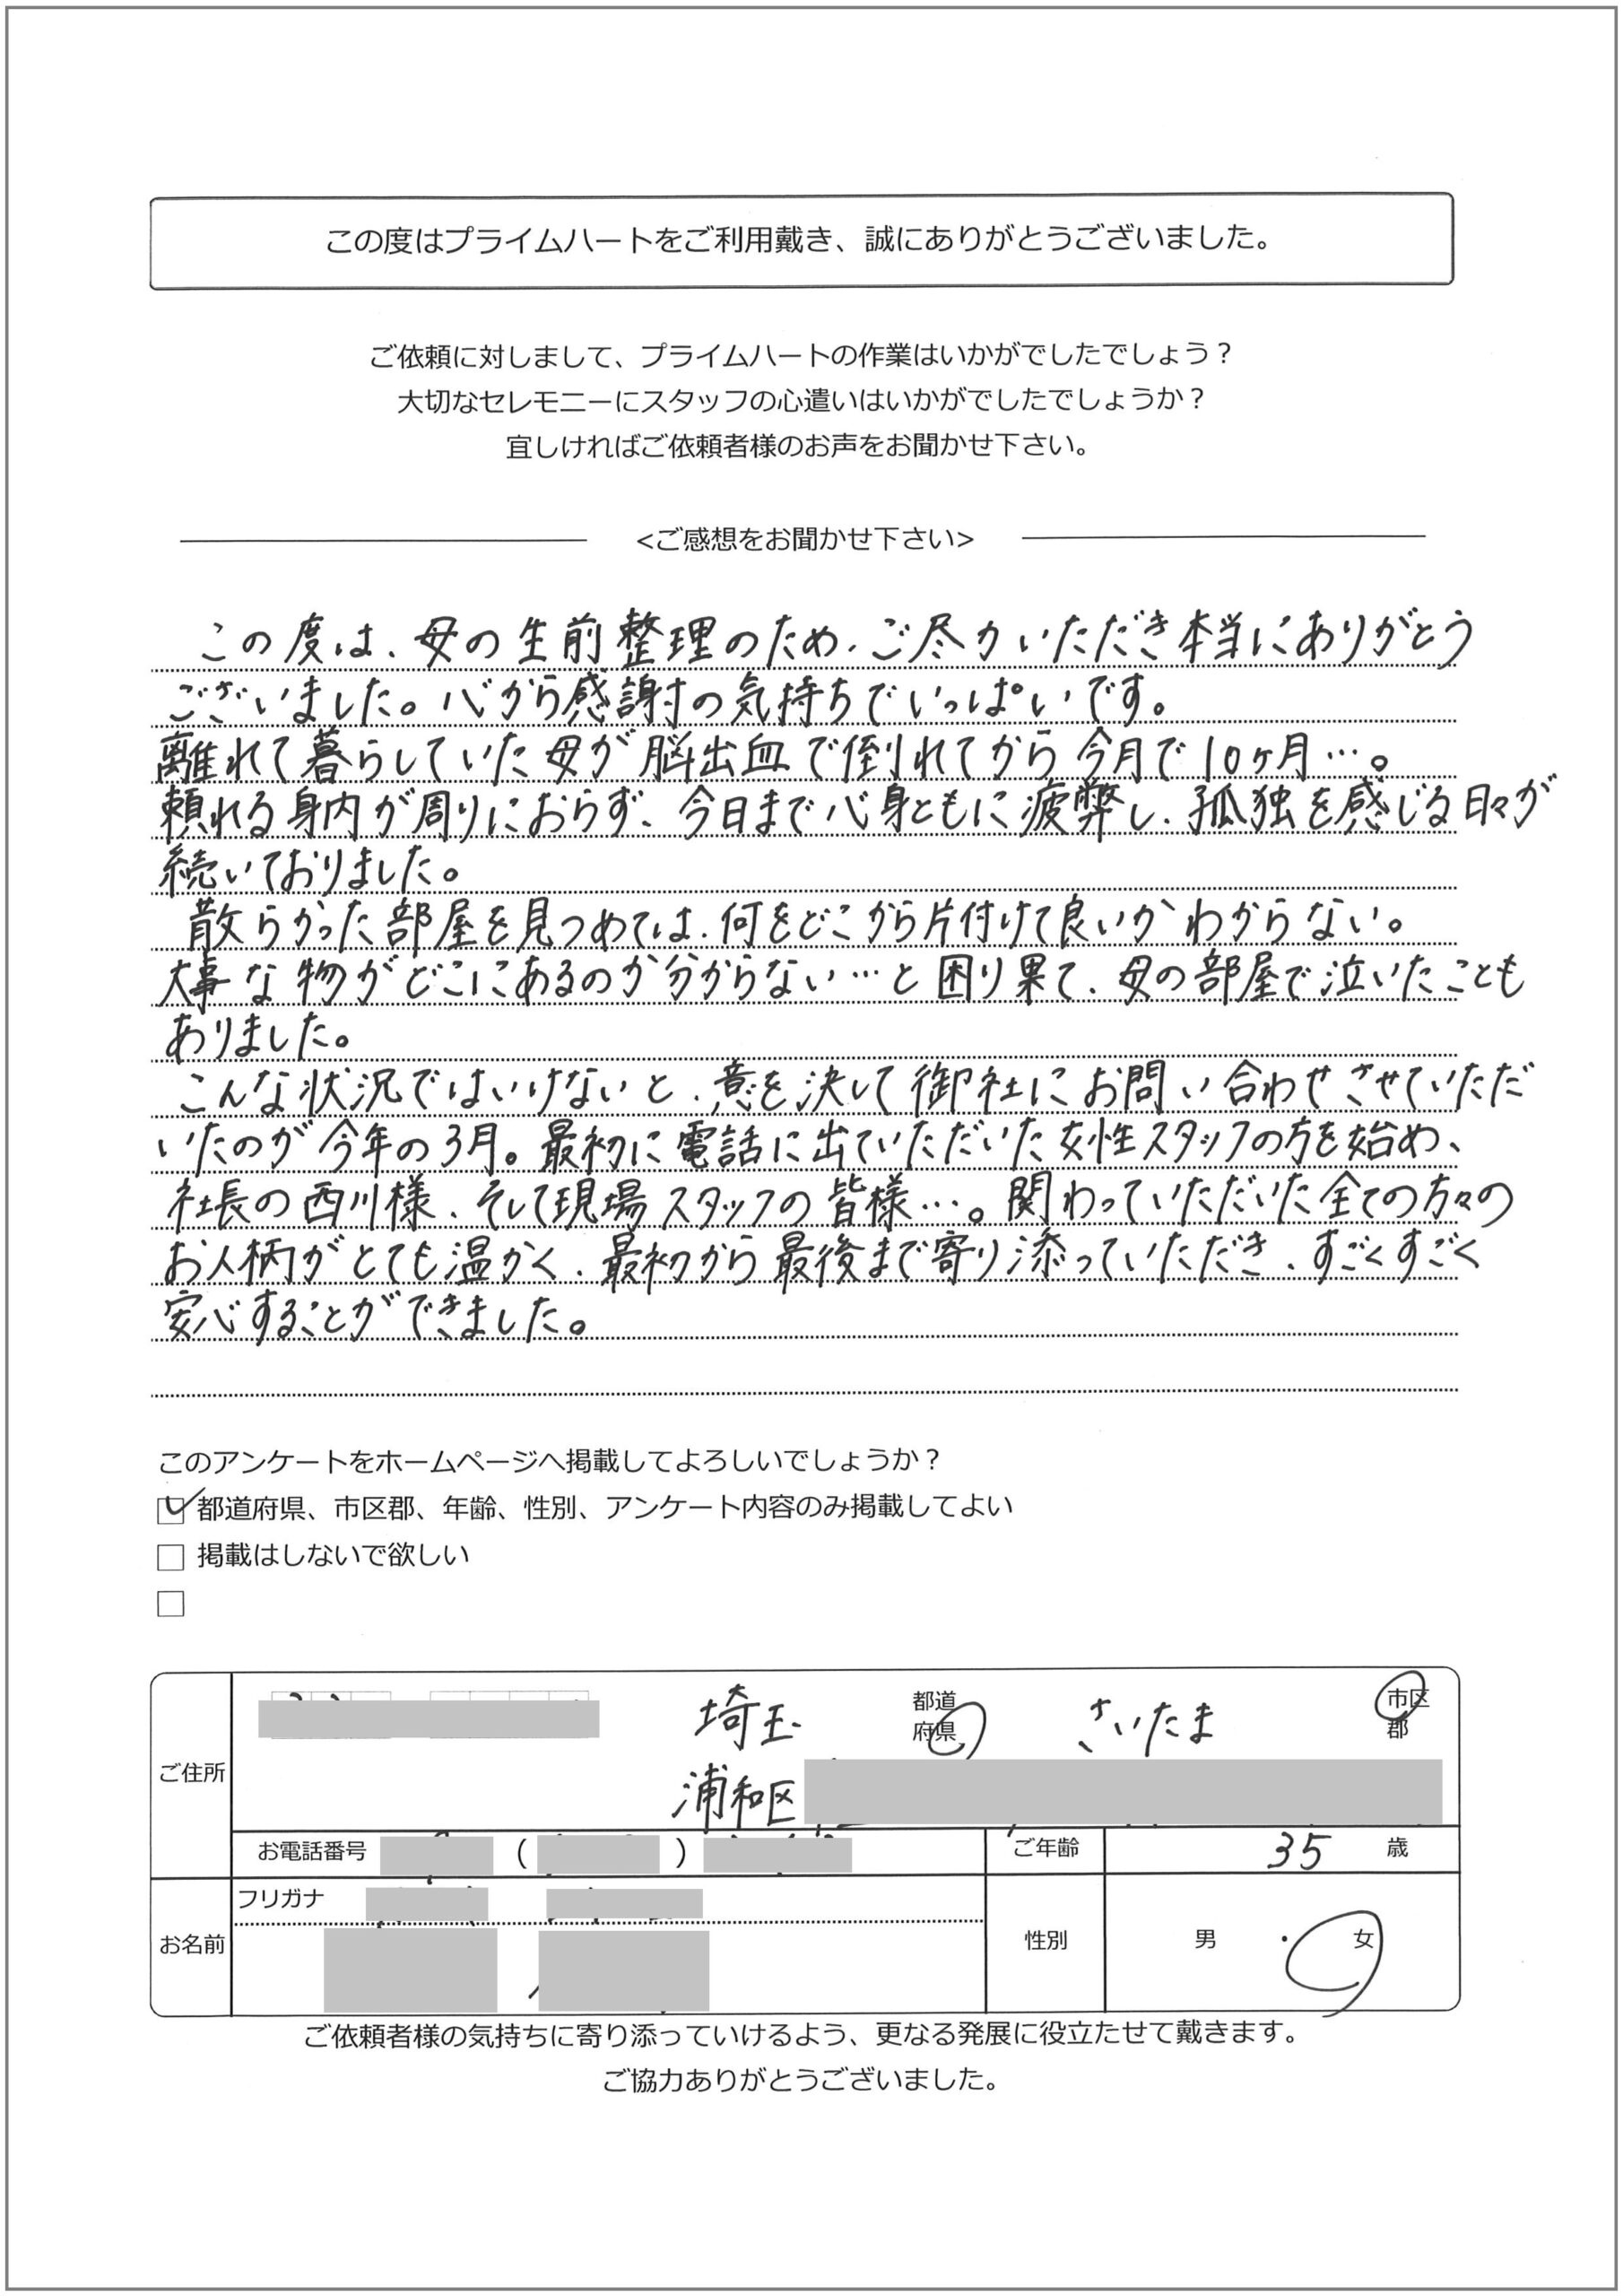 この度はプライムハートをご利用戴き、誠にありがとうございました。
ご依頼に対しまして、プライムハートの作業はいかがでしたでしょう？
大切なセレモニーにスタッフの心遣いはいかがでしたでしょうか？
宜しければご依頼者様のお声をお聞かせ下さい。
<ご感想をお聞かせ下さい>
この度は、母の生前整理のため、ご尽力いただき本当にありがとう
ございました。心から感謝の気持ちでいっぱいです。
離れて暮らしていた母が脳出血で倒れてから今月で10ヶ月…。
頼れる身内が周りにおらず、今日まで心身ともに疲弊し、孤独を感じる日々が
続いておりました。
散らかった部屋を見つめては、何をどこから片付けて良いかわからない。
大事な物がどこにあるのか分からない…と困り果て、母の部屋で泣いたことも
ありました。
こんな状況ではいけないと、意を決して御社にお問い合わせさせていただ
いたのが今年の3月。最初に電話に出ていただいた女性スタッフの方を始め、
社長の西川様、そして現場スタッフの皆様…。関わっていただいた全ての方々の
お人柄がとても温かく、最初から最後まで寄り添っていただき、すごくすごく
安心することができました。
このアンケートをホームページへ掲載してよろしいでしょうか？
都道府県、市区郡、年齢、性別、アンケート内容のみ掲載してよい
掲載はしないで欲しい
ご住所
埼玉 都道府県 さいたま 市区郡
浦和区
お電話番号 ( ) ご年齢 35 歳
フリガナ
お名前 性別 男 ・ 女
ご依頼者様の気持ちに寄り添っていけるよう、更なる発展に役立たせて戴きます。
ご協力ありがとうございました。